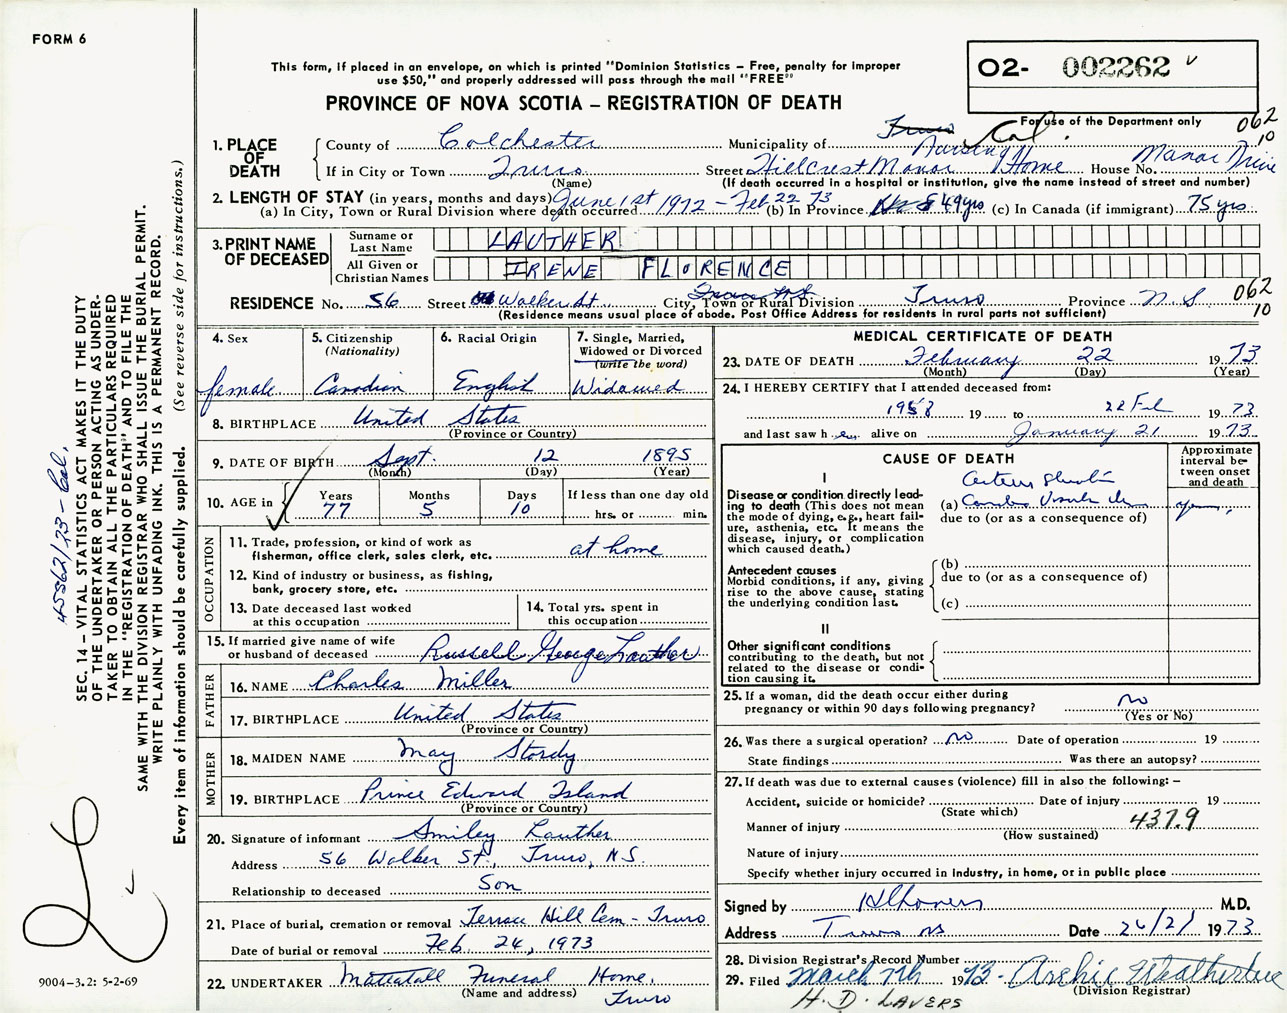 FORM 6
This form, if placed in an envelope, on which is printed "Dominion Statistics – Free, penalty for improper
use $50," and properly addressed will pass through the mail "FREE"
PROVINCE OF NOVA SCOTIA – REGISTRATION OF DEATH
02- 002262
For use of the Department only
062
10
1. PLACE OF DEATH
County of Colchester Municipality of Truro Col.
If in City or Town Truro Street Hillcrest Manor Nursing Home House No. Manor Drive
(Name) (If death occurred in a hospital or institution, give the name instead of street and number)
2. LENGTH OF STAY (in years, months and days)
(a) In City, Town or Rural Division where death occurred June 1st 1972 – Feb 22 73 (b) In Province 49 yrs (c) In Canada (if immigrant) 75 yrs
3. PRINT NAME OF DECEASED
Surname or Last Name LAUTHER
All Given or Christian Names IRENE FLORENCE
RESIDENCE No. 56 Street Walker St City, Town or Rural Division Truro Province N.S
062
10
(Residence means usual place of abode. Post Office Address for residents in rural parts not sufficient)
4. Sex female
5. Citizenship (Nationality) Canadian
6. Racial Origin English
7. Single, Married, Widowed or Divorced (write the word) Widowed
8. BIRTHPLACE United States
(Province or Country)
9. DATE OF BIRTH Sept. 12 1895
(Month) (Day) (Year)
10. AGE in Years 77 Months 5 Days 10 If less than one day old hrs. or min.
OCCUPATION
11. Trade, profession, or kind of work as fisherman, office clerk, sales clerk, etc. at home
12. Kind of industry or business, as fishing, bank, grocery store, etc.
13. Date deceased last worked at this occupation
14. Total yrs. spent in this occupation
15. If married give name of wife or husband of deceased Russell George Lauther
FATHER
16. NAME Charles Miller
17. BIRTHPLACE United States
(Province or Country)
MOTHER
18. MAIDEN NAME May Stordy
19. BIRTHPLACE Prince Edward Island
(Province or Country)
20. Signature of informant Smiley Lauther
Address 56 Walker St., Truro, N.S.
Relationship to deceased Son
21. Place of burial, cremation or removal Terrace Hill Cem – Truro
Date of burial or removal Feb. 24, 1973
22. UNDERTAKER Mattatall Funeral Home,
(Name and address) Truro
MEDICAL CERTIFICATE OF DEATH
23. DATE OF DEATH February 22 1973
(Month) (Day) (Year)
24. I HEREBY CERTIFY that I attended deceased from:
1958 19 to 22 Feb 1973
and last saw her alive on January 21 1973
CAUSE OF DEATH
Approximate interval between onset and death
I
Disease or condition directly leading to death (This does not mean the mode of dying, e.g., heart failure, asthenia, etc. It means the disease, injury, or complication which caused death.)
(a)
due to (or as a consequence of)
Antecedent causes
Morbid conditions, if any, giving rise to the above cause, stating the underlying condition last.
(b)
due to (or as a consequence of)
(c)
II
Other significant conditions
contributing to the death, but not related to the disease or condition causing it.
25. If a woman, did the death occur either during pregnancy or within 90 days following pregnancy? no
(Yes or No)
26. Was there a surgical operation? no Date of operation 19
State findings Was there an autopsy?
27. If death was due to external causes (violence) fill in also the following: –
Accident, suicide or homicide? Date of injury 19
(State which)
Manner of injury 437.9
(How sustained)
Nature of injury
Specify whether injury occurred in industry, in home, or in public place
Signed by M.D.
Address Truro NS Date 26/2/ 1973
28. Division Registrar's Record Number
29. Filed March 7th 1973
(Division Registrar)
H. D. LAVERS
45562/73-Col.
SEC. 14 – VITAL STATISTICS ACT MAKES IT THE DUTY
OF THE UNDERTAKER OR PERSON ACTING AS UNDER-
TAKER TO OBTAIN ALL THE PARTICULARS REQUIRED
IN THE "REGISTRATION OF DEATH" AND TO FILE THE
SAME WITH THE DIVISION REGISTRAR WHO SHALL ISSUE THE BURIAL PERMIT.
WRITE PLAINLY WITH UNFADING INK. THIS IS A PERMANENT RECORD.
Every item of information should be carefully supplied. (See reverse side for instructions.)
9004-3.2: 5-2-69